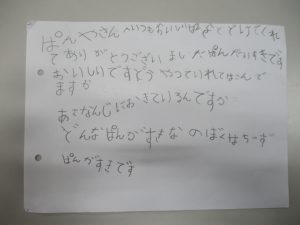 ぱんやさんへいつもおいしいぱんをとどけてくれ
てありがとうございましたぱんだいすきです
おいしいですどうやっていれてはこんで
ますか
あさなんじにおきているんですか
どんなぱんがすきなのぼくはちーず
ぱんがすきです